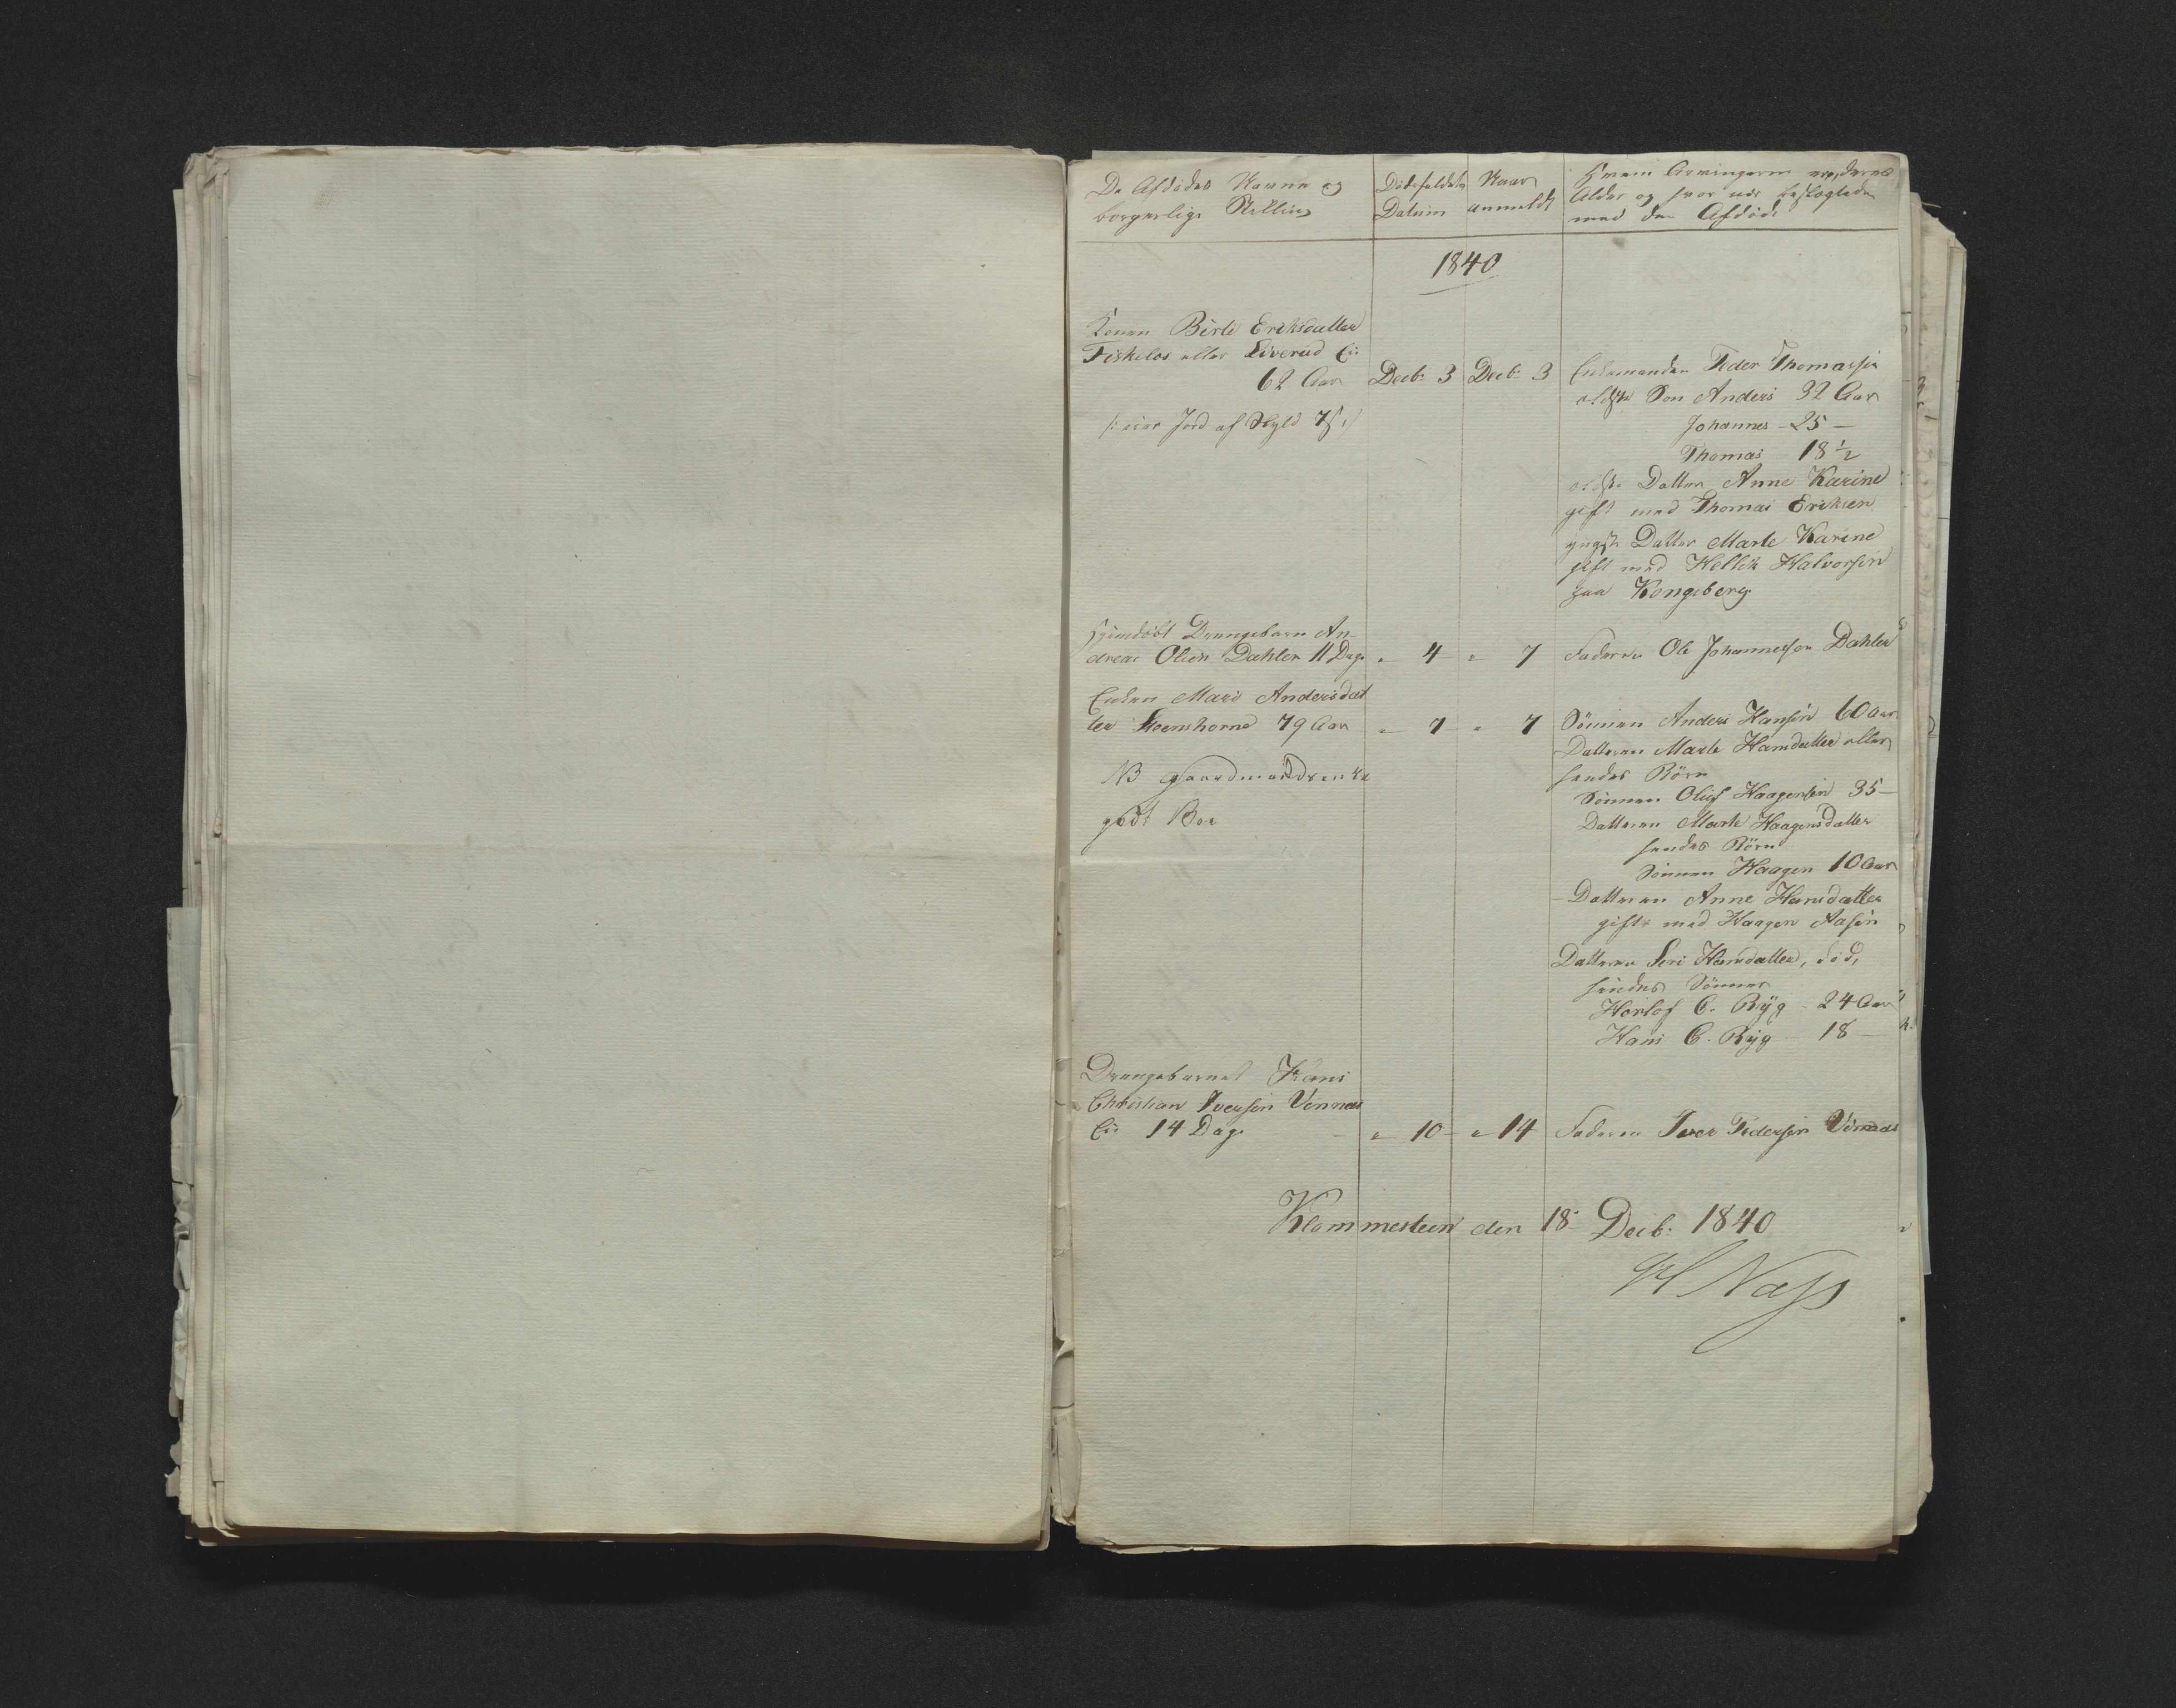 De Afdödes Navne og
borgerlige Stilling
Dödsfaldets
Datum
Naar
anmeldt
Hvem Arvingerne ere, deres
Alder og hvor nær beslægtede
med den Afdöde
1840
Konen Birte Eriksdatter
Fiskelös eller Liverud Ei:
62 Aar
Decb: 3
Decb: 3
Enkemanden Peder Thomassen
ældste Son Anders 32 Aar
/: eier Jord af Skyld
Johannes - 25 -
Thomas 18 1/2
ældste Datter Anne Karine
gift med Thomas Eriksen
yngste Datter Marte Karine
gift med Hellik Halvorsen
paa Kongsberg
Hjemdöbt Drengebarn An-
dreas Olsen Dahler 11 Dage
" 4 -
" 7
Faderen Ole Johannesen Dahler
Enken Mari Andersdat
ter 79 Aar
" 7 -
" 7
Sönnen Anders Hansen 60 Aar
Datteren Marte Hansdatter eller
hendes Börn
NB gaardmandsenke
godt Boe
Sönnen Oluf Haagensen 35 -
Datteren Marte Haagensdatter
hendes Börn
Sönnen Haagen 10 Aar
Datteren Anne Hansdatter
gift med Haagen Aasen
Datteren Siri Hansdatter, död,
hendes Sönner
Horlof C. Ryg - 24 Aar
Hans C. Ryg - 18 -
Drengebarnet Hans
Christian Iversen Vennes
Ei: 14 Dage
" 10 -
" 14
Faderen Iver Pedersen
Klommesteen den 18 Decb: 1840
H Næss